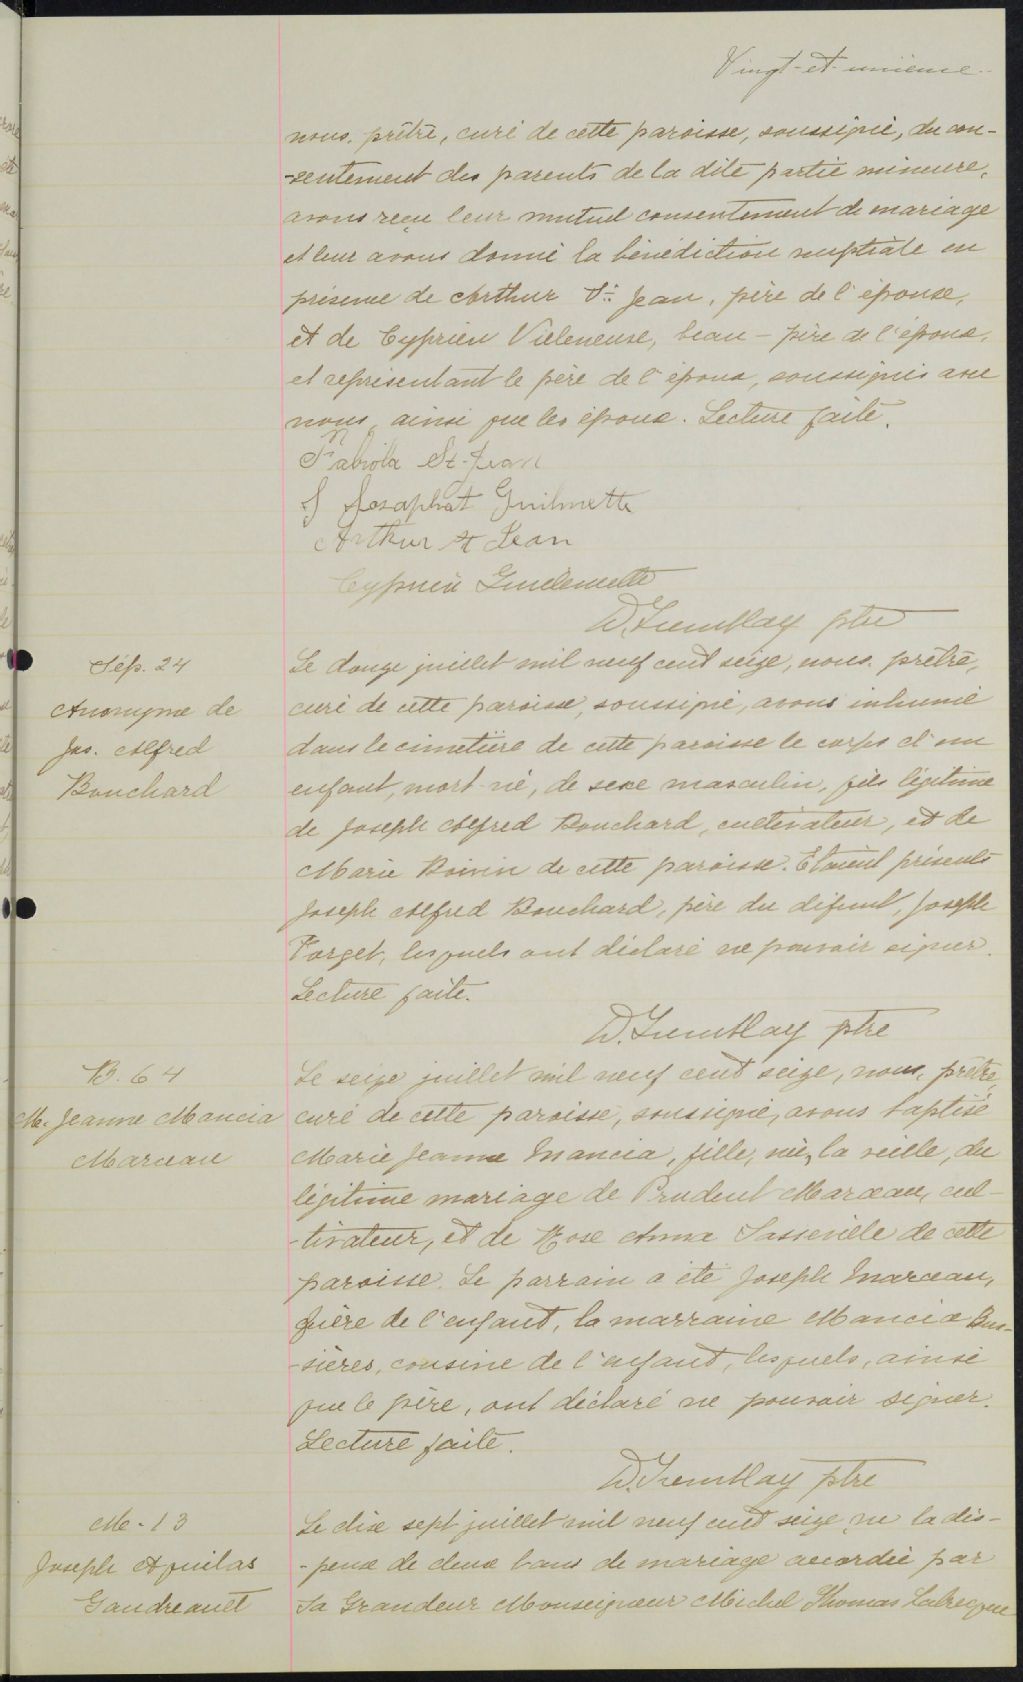 Vingt-et-unième
nous, prêtre, curé de cette paroisse, soussigné, du con-
-sentement des parents de la dite partie mineure,
avons reçu leur mutuel consentement de mariage
et leur avons donné la bénédiction nuptiale en
présence de Arthur St Jean, père de l'épouse,
et de Cyprien Villeneuve, beau-père de l'époux,
et représentant le père de l'époux, soussignés avec
nous, ainsi que les époux. Lecture faite.
Fabiola St-Jean
J Josaphat Guilmette
Arthur St Jean
Cyprien
D. Tremblay ptre
Sép. 24
Anonyme de
Jos. Alfred
Bouchard
Le douze juillet mil neuf cent seize, nous, prêtre,
curé de cette paroisse, soussigné, avons inhumé
dans le cimetière de cette paroisse le corps d'un
enfant, mort-né, de sexe masculin, fils légitime
de Joseph Alfred Bouchard, cultivateur, et de
Marie Boivin de cette paroisse. Etaient présents
Joseph Alfred Bouchard, père du défunt, Joseph
Forget, lesquels ont déclaré ne pouvoir signer.
Lecture faite.
D. Tremblay ptre
B. 64
M. Jeanne Mancia
Marceau
Le seize juillet mil neuf cent seize, nous, prêtre,
curé de cette paroisse, soussigné, avons baptisé
Marie Jeanne Mancia, fille, née, la veille, du
légitime mariage de Prudent Marceau, cul-
-tivateur, et de Rose Anna Sasseville de cette
paroisse. Le parrain a été Joseph Marceau,
frère de l'enfant, la marraine Mancia Bus-
-sières, cousine de l'enfant, lesquels, ainsi
que le père, ont déclaré ne pouvoir signer.
Lecture faite.
D. Tremblay ptre
M. 13
Joseph Aquilas
Gaudreault
Le dix sept juillet mil neuf cent seize, vu la dis-
-pense de deux bans de mariage accordée par
Sa Grandeur Monseigneur Michel Thomas Labrecque